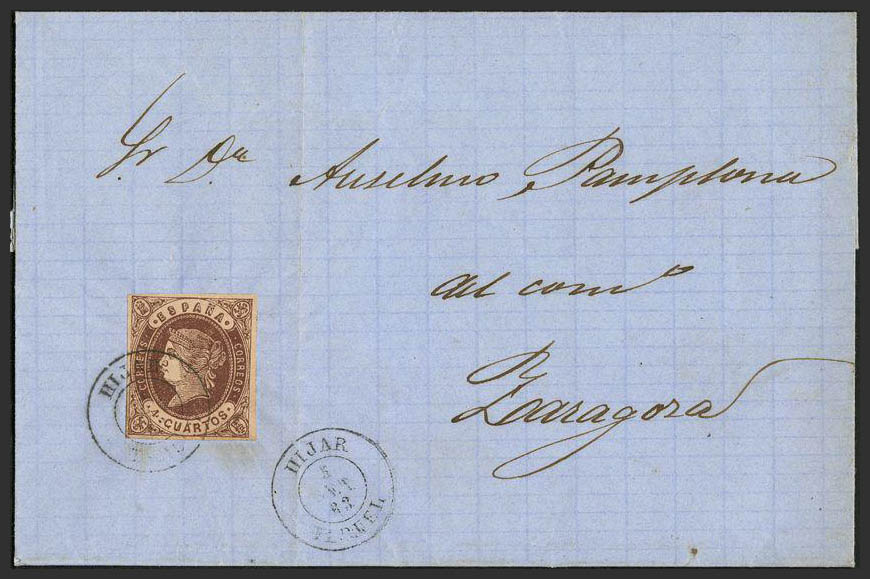 Sr Dn Anselmo Pamplona
del comº
Zaragoza
ESPAÑA
CORREOS CORREOS
4 CUARTOS
HIJAR
HIJAR
63
TERUEL